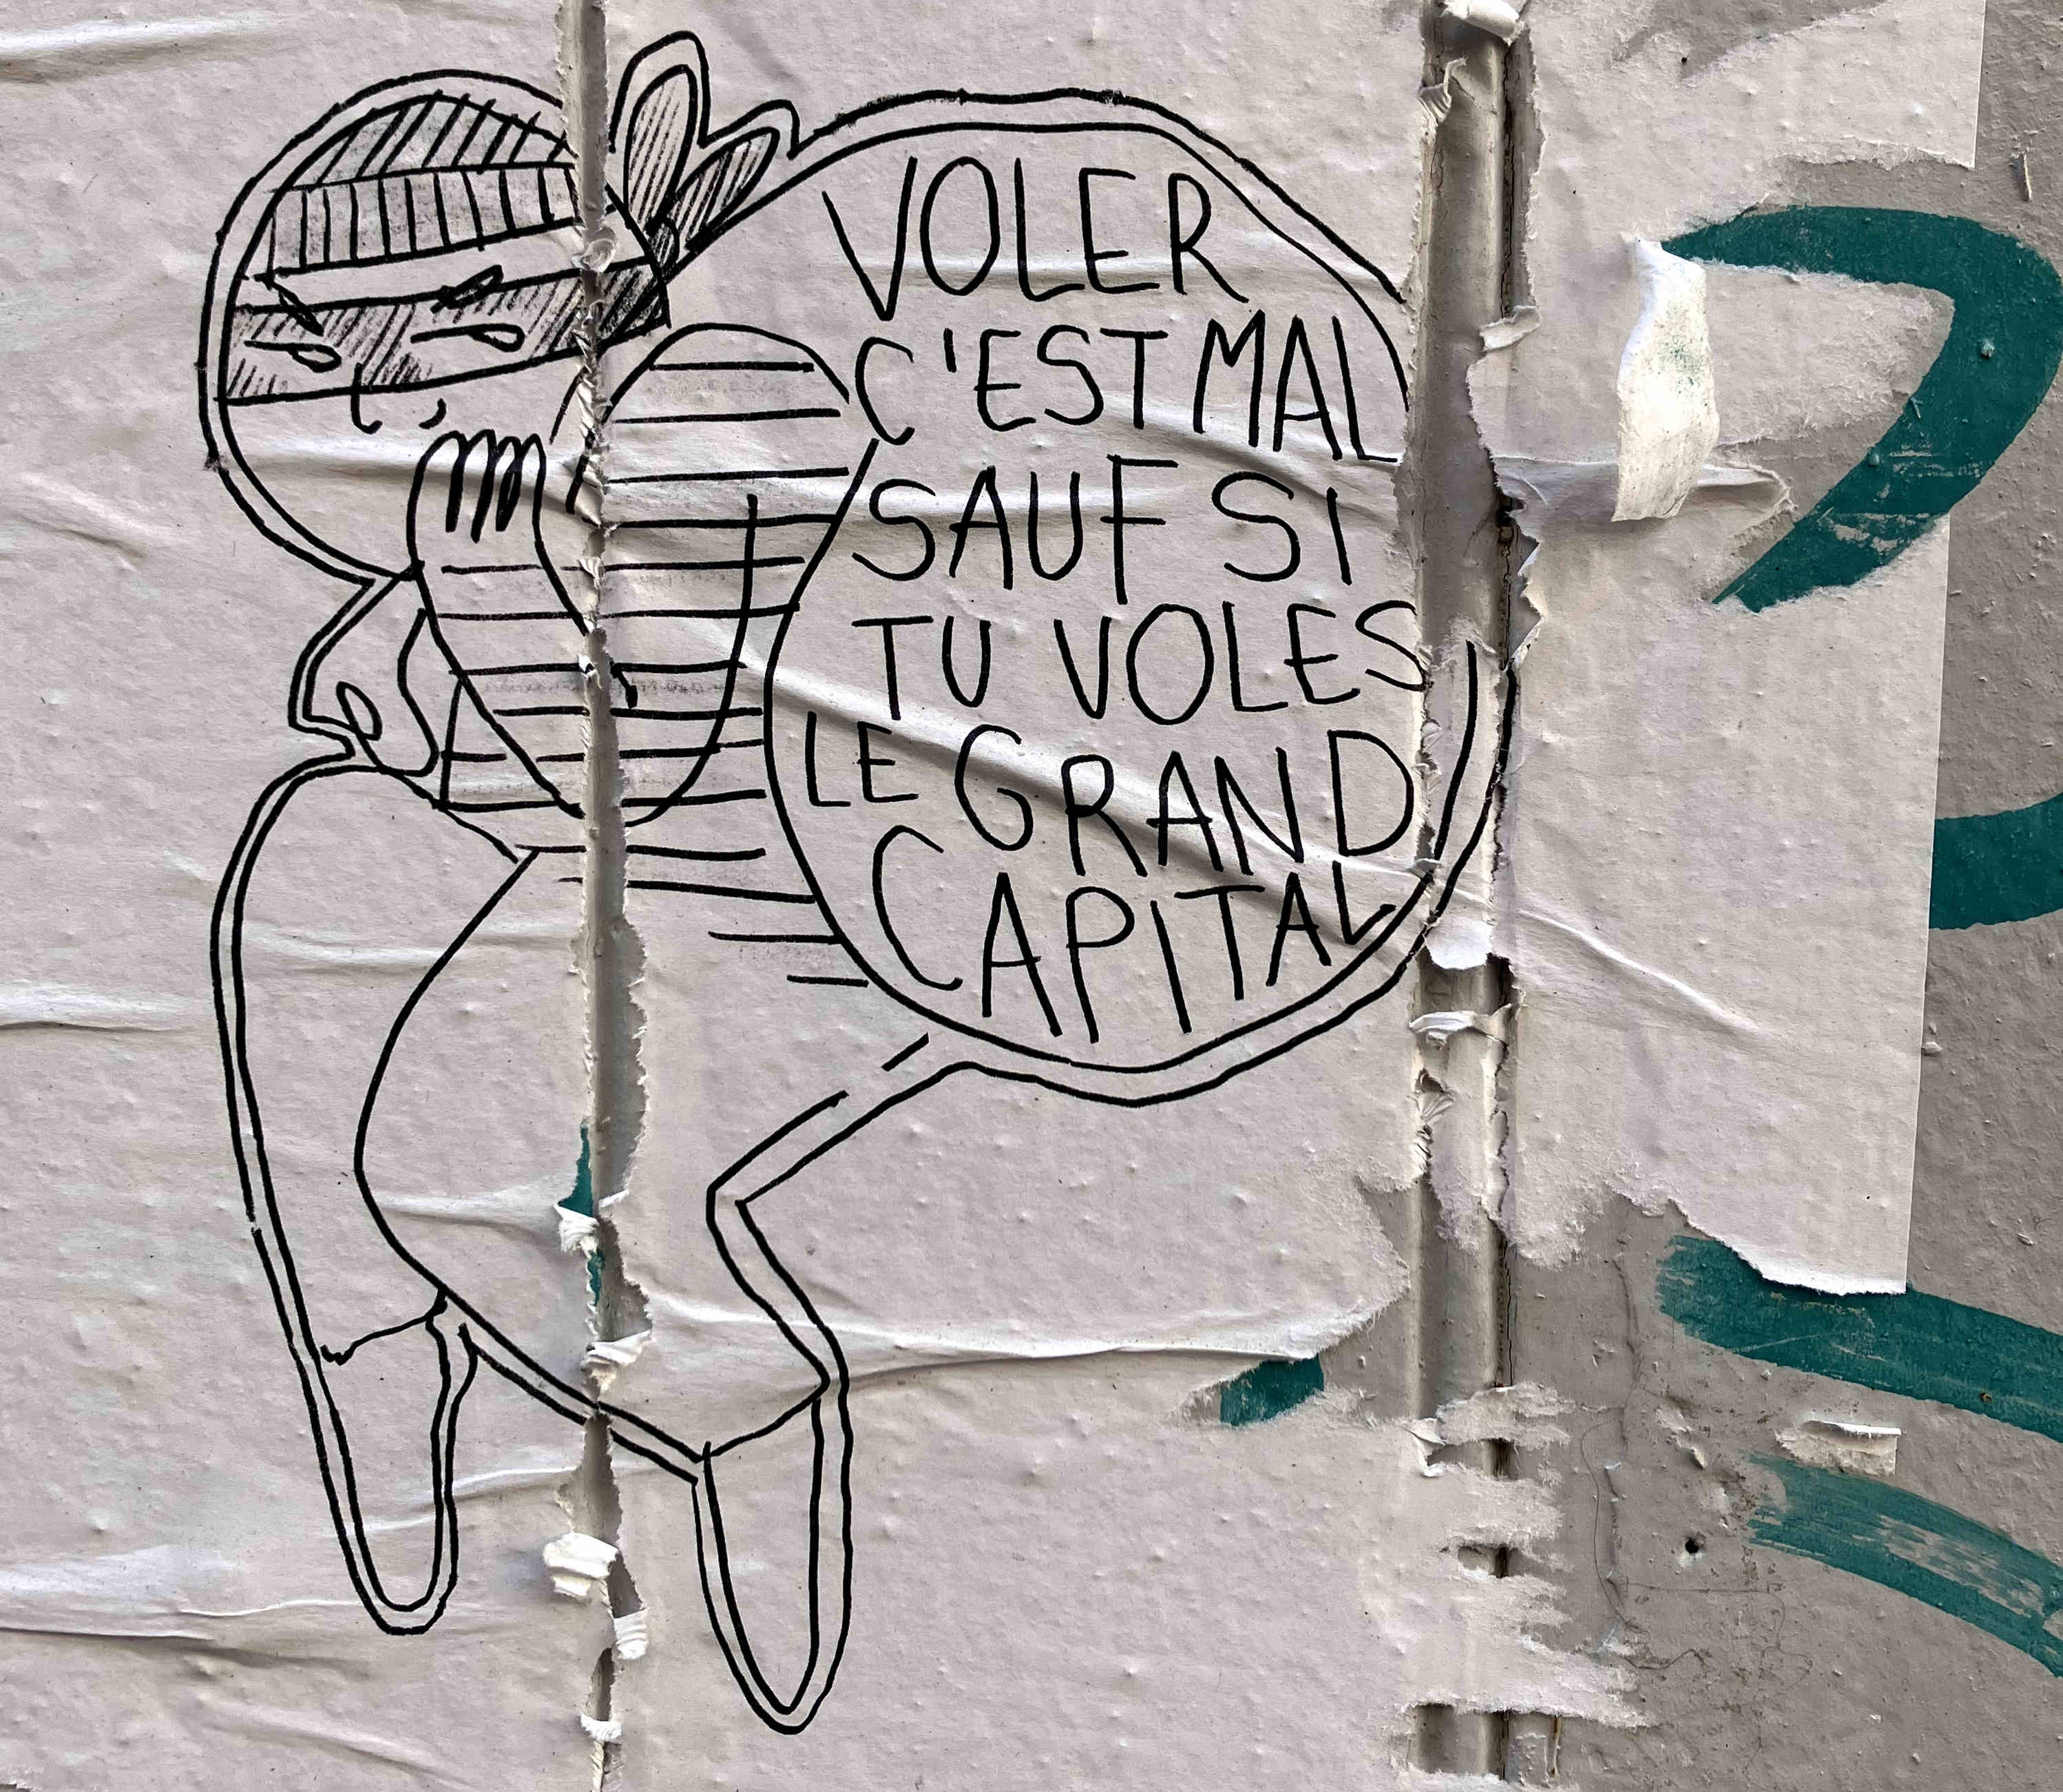 VOLER
C'EST MAL
SAUF SI
TU VOLES
LE GRAND
CAPITAL